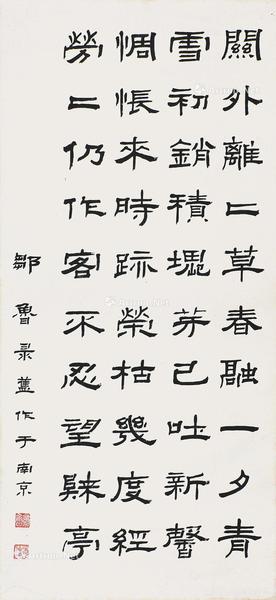 關外離二草春融一夕青
雪初銷積芽已吐新馨
惆悵來時跡榮枯幾度經
勞二仍作客不忍望亭
鄒魯彔舊作于南京